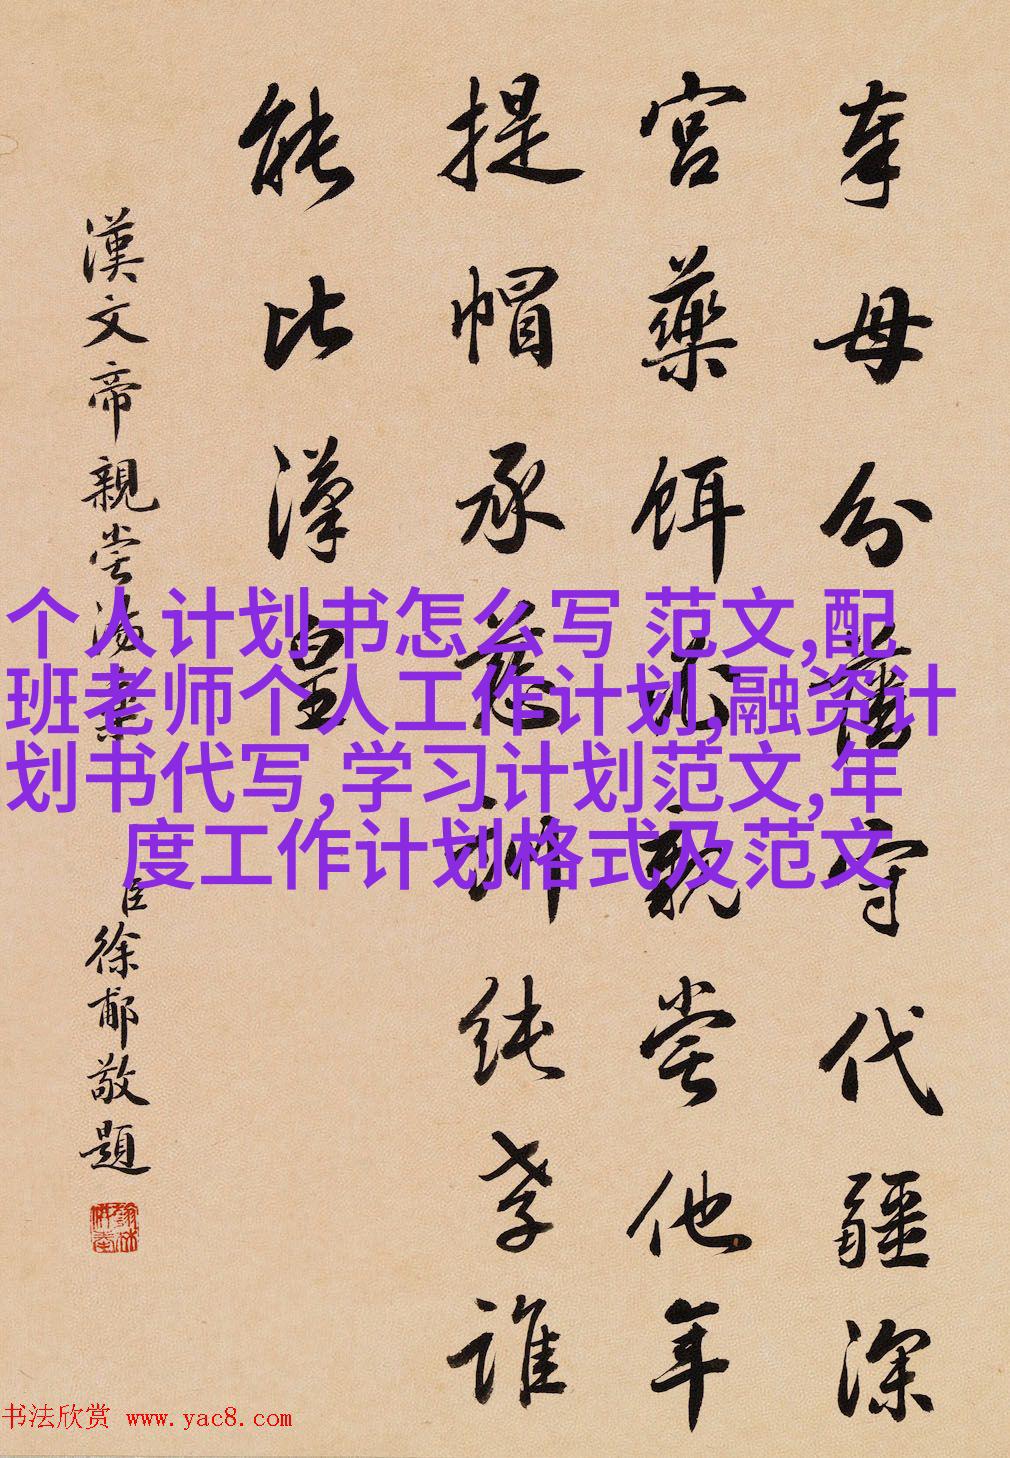 奉母分藩守代疆深
宮藥餌必親嘗他年
提帽承慈純孝誰
能比漢皇
漢文帝親嘗湯藥
臣徐郙敬題
个人计划书怎么写 范文,配
班老师个人工作计划,融资计
划书代写,学习计划范文,年
度工作计划格式及范文
书法欣赏 www.yac8.com